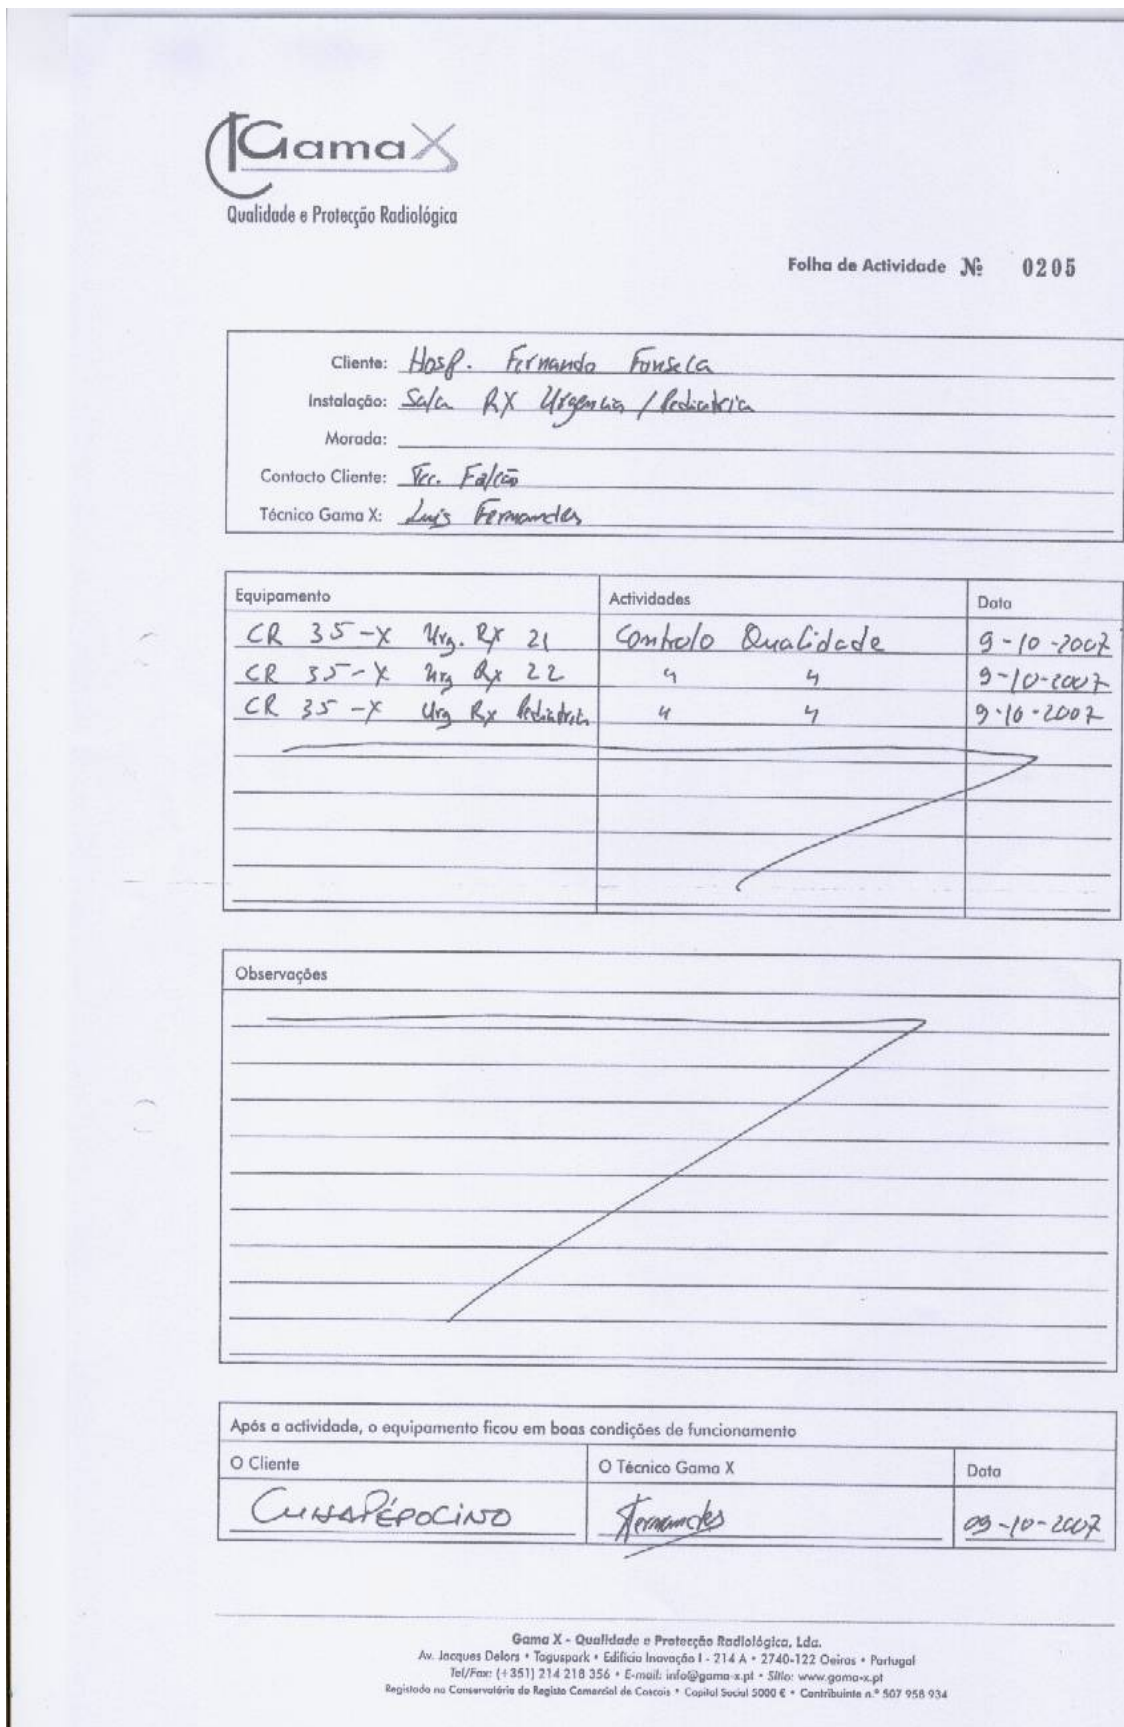 Gama X
Qualidade e Protecção Radiológica
Folha de Actividade Nº 0205
Cliente: Hosp. Fernando Fonseca
Instalação: Sala RX Urgencia / Pediatria
Morada:
Contacto Cliente: Tec. Falcão
Técnico Gama X: Luis Fernandes
Equipamento Actividades Data
CR 35-X Urg. Rx 21 Controlo Qualidade 9-10-2007
CR 35-X Urg Rx 22 " " 9-10-2007
CR 35-X Urg Rx Pediatria " " 9-10-2007
Observações
Após a actividade, o equipamento ficou em boas condições de funcionamento
O Cliente O Técnico Gama X Data
Fernandes 09-10-2007
Gama X - Qualidade e Protecção Radiológica, Lda.
Av. Jacques Delors • Taguspark • Edifício Inovação I - 214 A • 2740-122 Oeiras • Portugal
Tel/Fax: (+351) 214 218 356 • E-mail: info@gama-x.pt • Sítio: www.gama-x.pt
Registada na Conservatória do Registo Comercial de Cascais • Capital Social 5000 € • Contribuinte n.º 507 958 934